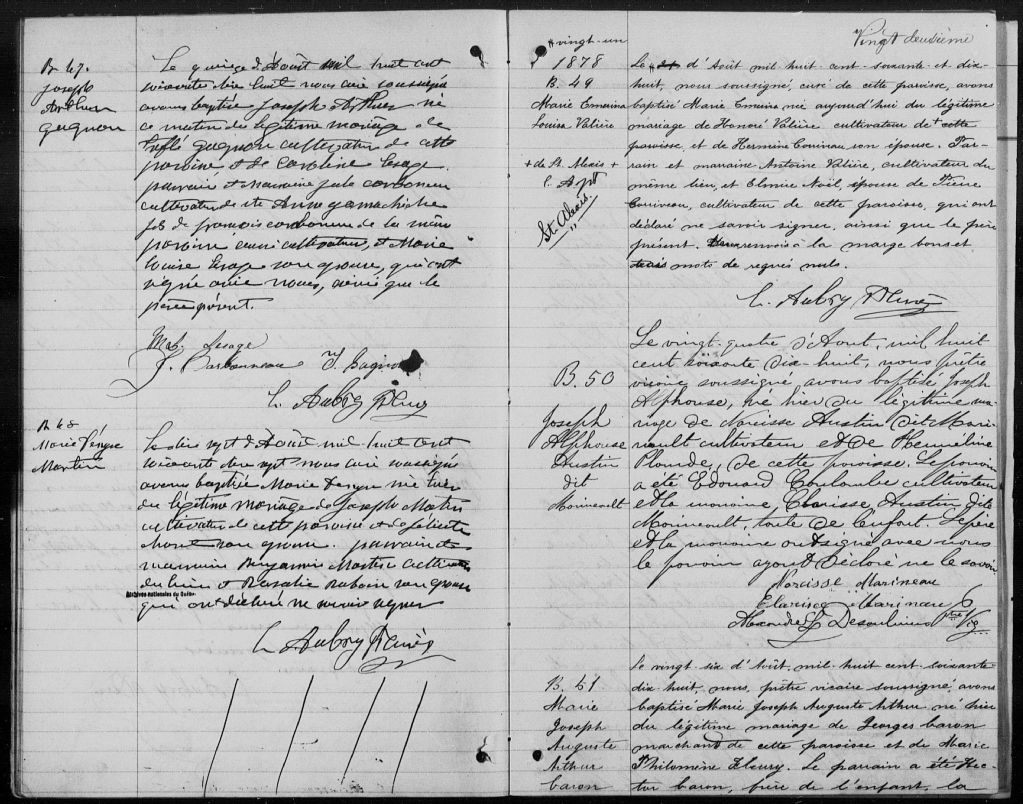 B 47.
Joseph
Arthur
gagnon
Le quinze d'Août mil huit cent
soixante dix huit nous curé soussigné
avons baptisé Joseph Arthur né
ce matin du légitime mariage de
Trefflé gagnon cultivateur de cette
paroisse et de Caroline Lesage
parrain et marraine Jule carbonneau
cultivateur de Ste Anne yamachiche
fils de françois carbonneau de la même
paroisse aussi cultivateur, et Marie
Louise Lesage son épouse, qui ont
signé avec nous, ainsi que le
père présent.
Lesage
J. Carbonneau
T. Gagnon
L. Aubry Ptre curé
B 48
Marie
Martin
Le dix sept d'Août mil huit cent
soixante dix sept nous curé soussigné
avons baptisé Marie née hier
du légitime mariage de Joseph Martin
cultivateur de cette paroisse et de
son épouse. parrain et
marraine Benjamin Martin cultivateur
du lieu et Rosalie son épouse
qui ont déclaré ne savoir signer
Archives nationales du Québec
L. Aubry Ptre curé
Vingt deuxième
+ vingt-un
1878
B. 49
Marie Ermina
Louisa Valière
+ de St. Alexis +
L. A. ptr
St. Alexis.
Le d'Août mil-huit-cent-soixante-et-dix-
huit, nous soussigné, curé de cette paroisse, avons
baptisé Marie Ermina née aujourd'hui du légitime
mariage de Honoré Valière cultivateur de + cette
paroisse, et de Hermine Couriveau son épouse. Par-
rain et marraine Antoine Valière, cultivateur du
même lieu, et Elmire Noël, épouse de Pierre
Couriveau, cultivateur de cette paroisse, qui ont
déclaré ne savoir signer, ainsi que le père
présent. renvois à la marge bons et
trois mots de rayés nuls.
L. Aubry Ptre curé
B. 50
Joseph
Alphonse
Austin
dit
Morineault
Le vingt-quatre d'Août, mil huit
cent soixante dix-huit, nous prêtre
vicaire soussigné, avons baptisé Joseph
Alphonse, né hier du légitime ma-
riage de Narcisse Austin dit Mori-
neault cultivateur et de Herméline
Plourde, de cette paroisse. Le parrain
a été Edouard Coulombe cultivateur
et la marraine Clarisse Austin dit
Morineault, tante de l'enfant. Le père
et la marraine ont signé avec nous
le parrain ayant déclaré ne le savoir
Narcisse Marineau
Clarisse Marineau
Alexandre L Desaulniers Ptre Vic.
B. 51
Marie
Joseph
Auguste
Arthur
Caron
Le vingt six d'Août, mil-huit cent-soixante-
dix-huit, nous, prêtre vicaire soussigné, avons
baptisé Marie Joseph Auguste Arthur né hier
du légitime mariage de Georges Caron
marchand de cette paroisse et de Marie
Philomène Fleury. Le parrain a été Hec-
tor Caron, frère de l'enfant, la